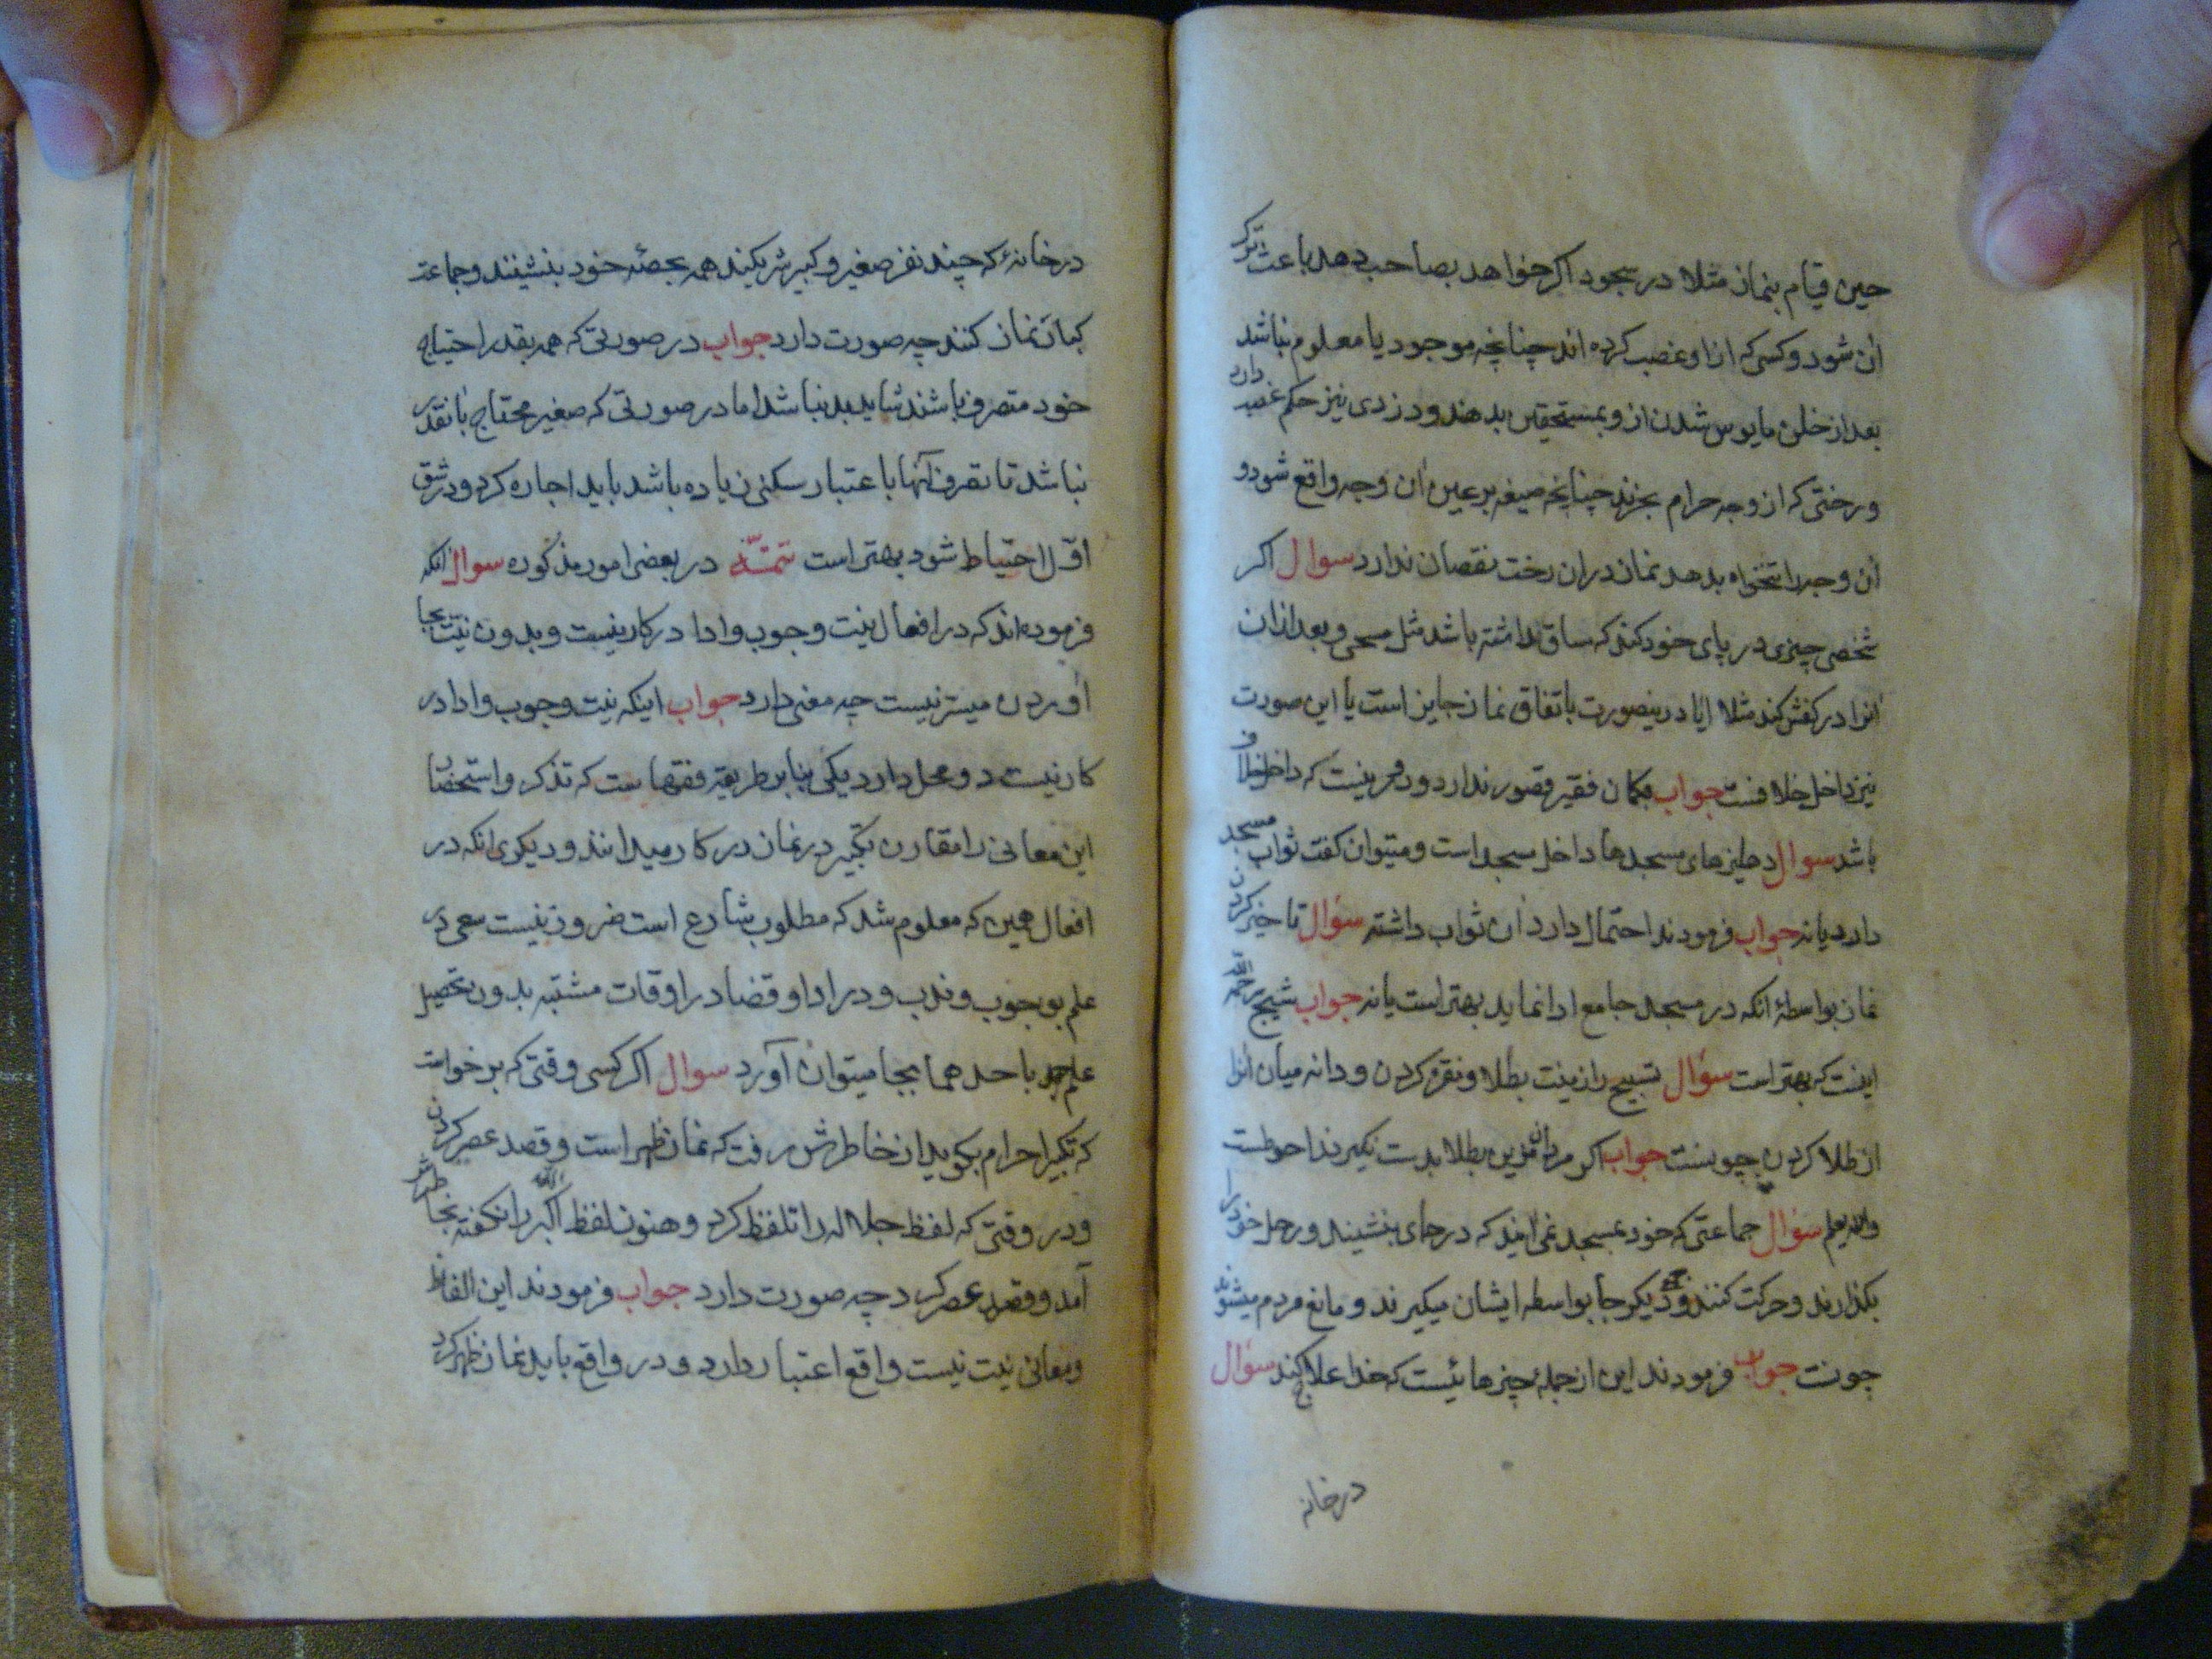 حین قیام بنماز مثلا در سجود اکر خواهد بصاحب دهد باعث ترک
آن شود و کسی که از او غصب کرده اند چنانچه موجود یا معلوم نباشد
بعد از مایوس شدن از و بمستحقین بدهند و دزدی نیز حکم غصب دارد
و رختی که از وجه حرام بخرند چنانچه صیغه بر عین آن وجه واقع شود و
آن وجه را بتنخواه بدهد نماز در ان رخت نقصان ندارد سوال اکر
شخصی چیزی در پای خود کند که ساق نداشته باشد مثل مسحی و بعد از ان
انرا در کفش کند مثلا ایا درینصورت باتفاق نماز جایز است یا این صورت
نیز داخل خلافست جواب بکمان فقیر قصور ندارد و در که داخل خلاف
باشد سوال دهلیزهای مسجدها داخل مسجد است و میتوان کفت ثواب مسجد
دارد یا نه جواب فرمودند احتمال دارد ان ثواب داشته سؤال تاخیر کردن
نماز بواسطهٔ انکه در مسجد جامع ادا نماید بهتر است یا نه جواب شیخ رحمه الله
اینست که بهتر است سؤال تسبیح را زینت بطلا و نقره کردن و دانه میان انرا
از طلا کردن چونست جواب اکر مردان مزین بطلا بدست نکیرند احوطست
والله یعلم سؤال جماعتی که خود بمسجد نمی آیند که در جای بنشینند و رحل خود را
بکذارند و حرکت کنند و دیکر جا بواسطه ایشان میکیرند و مانع مردم میشوند
چونست جواب فرمودند این از جمله چیزهائیست که خدا علاج کند سؤال
درخانه
درخانهٔ که چند نفر صغیر و کبیر شریکیند همه بحصهٔ خود بنشینند و جماعت
کبار نماز کنند چه صورت دارد جواب در صورتی که همه بقدر احتیاج
خود متصرف باشند شاید بد نباشد اما در صورتی که صغیر محتاج بانقدر
نباشد تا تصرف آنها باعتبار سکنی زیاده باشد باید اجاره کرد و در شق
اول احتیاط شود بهتر است تتمـّه در بعضی امور مذکوره سوال انکه
فرموده اند که در افعال نیت وجوب و ادا در کار نیست و بدون نیت بجا
اوردن میسر نیست چه معنی دارد جواب اینکه نیت وجوب و ادا در
کار نیست دو محل دارد یکی بنابر طریقه فقهاست که تذکر و استحضار
این معانی را مقارن تکبیر در نماز در کار میدانند و دیکری انکه در
افعال همین که معلوم شد که مطلوب شارع است ضرور نیست سعی در
علم بوجوب و ندب و در ادا و قضا در اوقات مشتبه بدون تحصیل
علم باحدهما بجا میتوان آورد سوال اکر کسی وقتی که برخواست
که تکبیر احرام بکوید از خاطرش رفت که نماز ظهر است و قصد عصر کردن
و در وقتی که لفظ جلاله را تلفظ کرد و هنوز لفظ اکبر را نکفته بخاطرش
آمد و قصد عصر کرد چه صورت دارد جواب فرمودند این الفاظ
و معانی نیت نیست واقع اعتبار دارد و در واقع باید نماز ظهر کرد